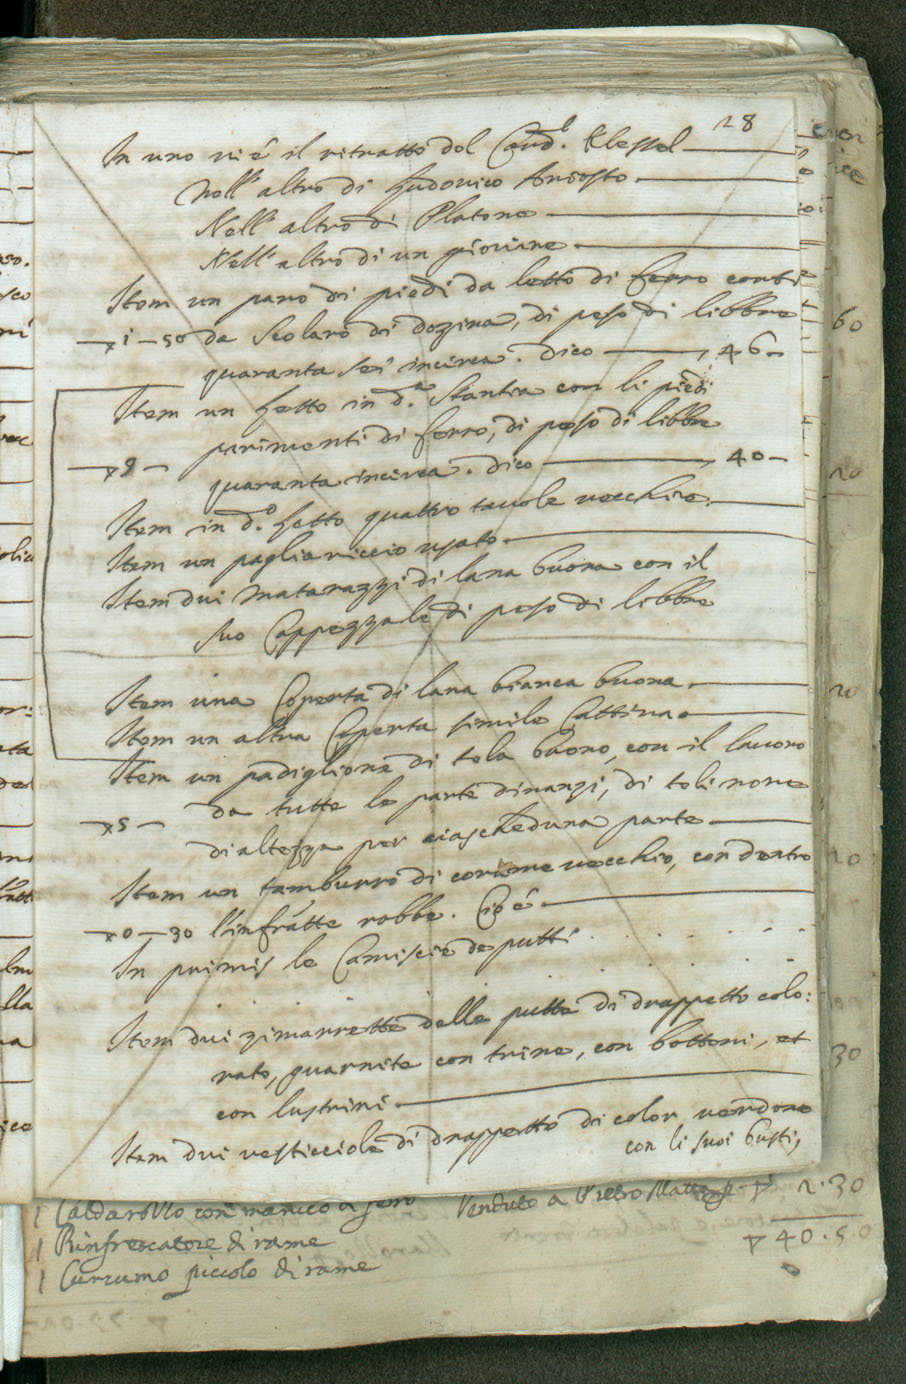 28
In uno vi è il ritratto del Card.l Klessel
Nell' altro di Ludovico Ariosto
Nell' altro di Platone
Nell' altro di un giovine
Item un paro di piedi da letto di ferro
1 – 50 da Scolaro di dozina, di peso di libbre
quaranta sei incirca. dico 46
Item un Letto in d.a Stantia con li piedi
parimenti di ferro, di peso di libbre
quaranta incirca. dico 40
Item in d.o Letto quattro tavole vecchie
Item un pagliariccio usato
Item dui Matarazzi di lana buona con il
suo Cappezzale di peso di libbre
Item una Coperta di lana bianca buona
Item un altra Coperta simile Cattiva
Item un padiglione di tela buono, con il lavoro
da tutte le parte dinanzi, di teli nove
5 di altezza per ciascheduna parte
Item un tamburro di corame vecchio, con dentro
0 – 30 l'infratte robbe. Cioè
In primis le Camiscie de putti
Item dui zimarrette delle putte di drappetto colo:
rato, guarnite con trine, con bottoni, et
con lustrini
Item dui vesticciole di drappetto di color verdone
con li suoi busti,
1 Caldarello con manico di ferro Venduto a Pietro 2.30
1 Rinfrescatore di rame 40.50
1 Cuccumo piccolo di rame
60
20
20
20
30